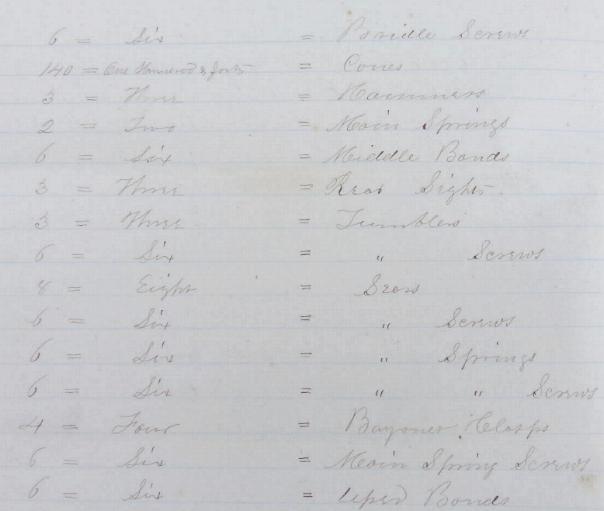 6 = Six = Bridle Screws
140 = One Hundred & forty = Cones
3 = Three = Hammers
2 = Two = Main Springs
6 = Six = Middle Bands
3 = Three = Rear Sights.
3 = Three = Tumblers
6 = Six = " Screws
8 = Eight = Sears
6 = Six = " Screws
6 = Six = " Springs
6 = Six = " " Screws
4 = Four = Bayonet Clasps
6 = Six = Main Spring Screws
6 = Six = Bands